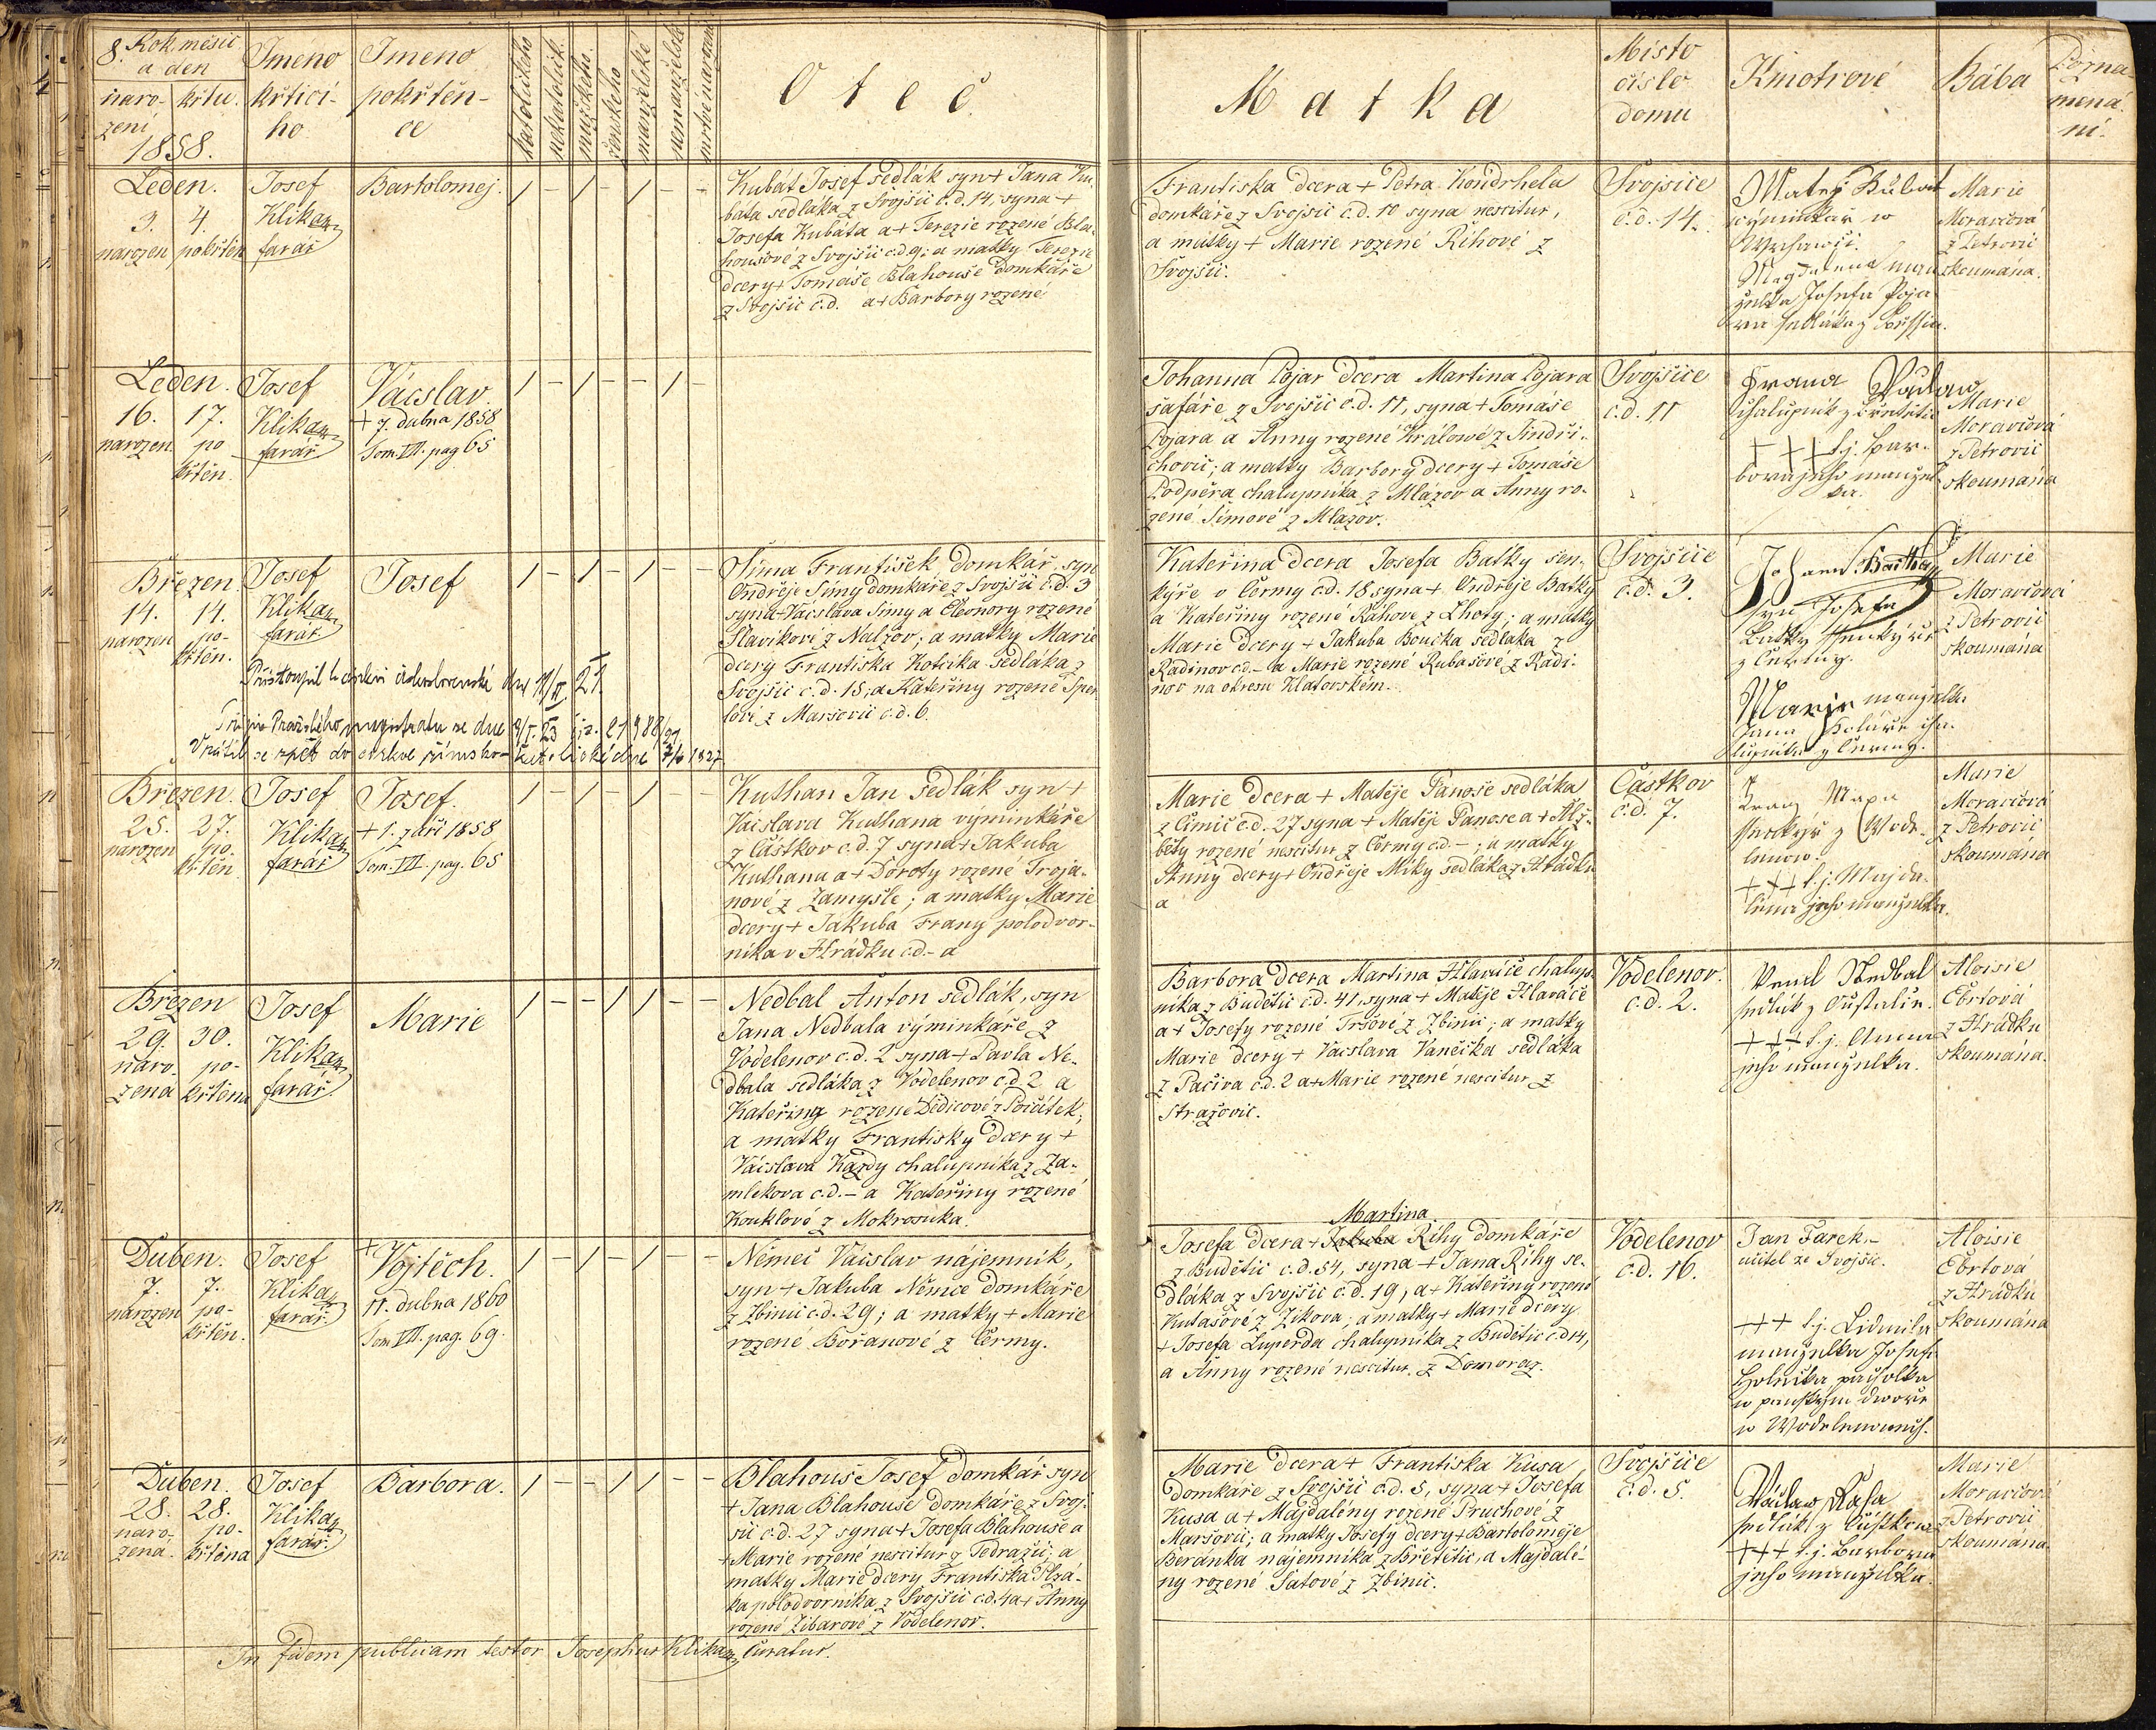 8. Rok, měsíc
a den
naro-
zení
křtu.
1858.
Jméno
křtící-
ho
Jmeno
pokřtěn-
ce
katolického
nekatolick.
mužského.
ženského
manželské
nemanželské
mrtvě narozené
Otec.
Matka
Místo
číslo
domu
Kmotrové
Bába
Pozna-
mená-
ní.
Leden.
3. 4.
narozen pokřtěn
Josef
Klika
farář
Bartolomej.
/ – / – / – –
Kubát Josef sedlák syn + Jana Ku-
báta sedláka z Svojšic č.d. 14, syna +
Josefa Kubáta a + Terezie rozené Bla-
houšové z Svojšic č.d. 9; a matky Terezie
dcery + Tomáše Blahouše domkáře
z Svojšic č.d. a + Barbory rozené
Františka dcera + Petra Kondrhela
domkáře z Svojšic č.d. 10 syna nescitur,
a matky + Marie rozené Říhové z
Svojšic.
Svojšice
č.d. 14.
Matěj Kubat
výminkář w
Magdalena man-
želka Josefa Poja
ra sedláka z
Marie
Moravcová
z Petrovic
skoumána.
Leden.
16. 17.
narozen po
křtěn.
Josef
Klika
farář
Václav.
+ 7. dubna 1858
Tom. VII. pag 65
/ – / – – / –
Johanna Pojar dcera Martina Pojara
šafáře z Svojšic č.d. 11, syna + Tomáše
Pojara a Anny rozené Králové z Jindři-
chovic; a matky Barbory dcery + Tomáše
Podpěra chalupníka z Mlázov a Anny ro-
zené Šimové z Mlázov.
Svojšice
č.d. 11
Franz Paulaw
chalupnik z
+++ t.j. Bar-
bora jeho manžel-
ka.
Marie
Moravcová
z Petrovic
skoumána
Březen.
14. 14.
narozen po-
křtěn.
Josef
Klika
farář.
Josef
/ – / – / – –
Šíma František domkář, syn
Ondřeje Šímy domkáře z Svojšic č.d. 3
syna + Václava Šímy a Eleonory rozené
Slavíkové z Nalžov; a matky Marie
dcery Františka Kotěika sedláka z
Svojšic č.d. 15, a Kateřiny rozené Šper-
lové z Maršovic č.d. 6.
Přistoupil k církvi československé dne 11/II. 21.
Vrátil se zpět do církve římsko-katolické dne 7/6 1927
Kateřina dcera Josefa Baťky šen-
kýře v Čermy č.d. 18 syna + Ondřeje Baťky
a Kateřiny rozené Ráhove z Lhoty; a matky
Marie dcery + Jakuba Boučka sedláka z
Radinov č.d. – a Marie rozené Rubašové z Radi-
nov na okresu Klatovském.
Svojšice
č.d. 3.
Johann Barthay
syn Josefa
Batky šenkýře
z Čermy.
Marie manželka
Jana Koláře cha-
lupníka z Čermy.
Marie
Moravcová
z Petrovic
skoumána
Březen.
25. 27.
narozen po-
křtěn
Josef
Klika
farář
Josef.
+ 1. září 1858
Tom. VII. pag. 65
/ – / – / – –
Kuthan Jan sedlák syn +
Václava Kuthana výminkáře
z Částkov č.d. 7 syna + Jakuba
Kuthana a + Doroty rozené Troja-
nové z Zamyšle; a matky Marie
dcery + Jakuba Frany polodvor-
níka v Hrádku č.d. – a
Marie dcera + Matěje Panoše sedláka
z Čimic č.d. 27 syna + Matěje Panoše a + Alž-
běty rozené nescitur z Čermy č.d. – ; a matky
Anny dcery + Ondřeje Míky sedláka z Hrádku
a
Částkov
č.d. 7.
Franz Mapa
šenkýř z Wode-
lenow.
+++ t.j. Magda-
lena jeho manželka.
Marie
Moravcová
z Petrovic
skoumána
Březen
29. 30.
naro- po-
zena křtěna
Josef
Klika
farář.
Marie
/ – – / / – –
Nedbal Anton sedlák, syn
Jana Nedbala výminkáře z
Vodelenov č.d. 2 syna + Pavla Ne-
dbala sedláka z Vodelenov č.d. 2 a
Kateřiny rozené Dědicové z Počátek;
a matky Františky dcery +
Václava Kazdy chalupníka z Za-
mlekova č.d. – a Kateřiny rozené
Kouklové z Mokrosuka.
Barbora dcera Martina Hlaváče chalup-
níka z Budětic č.d. 41, syna + Matěje Hlaváče
a + Josefy rozené Tršové z Zbinic; a matky
Marie dcery + Václava Vančíka sedláka
z Pačiva č.d. 2 a + Marie rozené nescitur z
Stražovic.
Vodelenov.
č.d. 2.
Nedbal
sedlák z
+++ t.j. Anna
jeho manželka.
Aloisie
Ebrtová
z Hrádku
skoumána.
Duben.
7. 7.
narozen po-
křtěn.
Josef
Klika
farář.
+
Vojtěch.
11. dubna 1860
Tom VII. pag. 69.
/ – / – / – –
Němec Václav nájemník,
syn + Jakuba Němce domkáře
z Zbinic č.d. 29; a matky + Marie
rozené Bořanové z Čermy.
Martina
Josefa dcera + Jakuba Říhy domkáře
z Budětic č.d. 54, syna + Jana Říhy se-
dláka z Svojšic č.d. 19, a + Kateřiny rozené
Kutašové z Žikova, a matky + Marie dcery
+ Josefa Luperda chalupníka z Budětic č.d. 14,
a Anny rozené nescitur z Domoraz.
Vodelenov
č.d. 16.
Jan Farek,
učitel ze Svojšic.
+++ t.j. Lidmila
manželka Josefa
Holečka pacholka
w panským dwoře
w Wodelenowech.
Aloisie
Ebrtová
z Hrádku
skoumána
Duben.
28. 28.
naro- po-
zená. křtěna
Josef
Klika
farář.
Barbora.
/ – – / / – –
Blahouš Josef domkář syn
+ Jana Blahouše domkáře z Svoj-
šic č.d. 27 syna + Josefa Blahouše a
+ Marie rozené nescitur z Tedražic; a
matky Marie dcery Františka Plzá-
ka polodvorníka z Svojšic č.d. 4 a + Anny
rozené Žibarové z Vodelenov.
Marie dcera + Františka Kusa
domkáře z Svojšic č.d. 5, syna + Josefa
Kusa a + Majdalény rozené Pruchové z
Maršovic; a matky Josefy dcery + Bartoloměje
Beránka nájemníka z Břetětic, a Majdalé-
ny rozené Šatové z Zbinic.
Svojšice
č.d. 5.
Václaw Kaša
sedlák z Částkow
+++ t.j. Barbora
jeho manželka.
Marie
Moravcová
z Petrovic
skoumána.
In fidem publicam testor Josephus Klika Curatus.